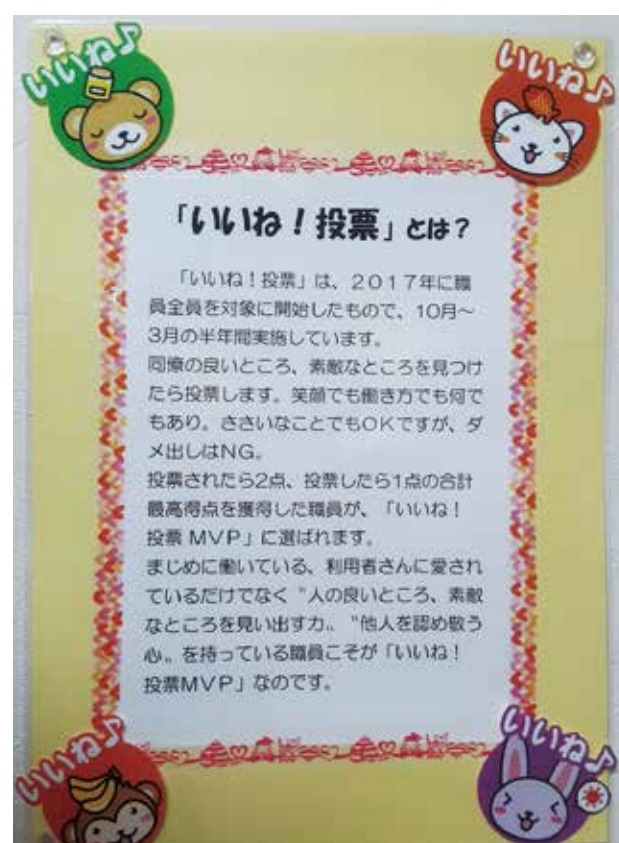 いいね♪
いいね♪
「いいね！投票」とは？
「いいね！投票」は、２０１７年に職
員全員を対象に開始したもので、10月〜
3月の半年間実施しています。
同僚の良いところ、素敵なところを見つけ
たら投票します。笑顔でも働き方でも何で
もあり。ささいなことでもＯＫですが、ダ
メ出しはＮＧ。
投票されたら2点、投票したら1点の合計
最高得点を獲得した職員が、「いいね！
投票 ＭＶＰ」に選ばれます。
まじめに働いている、利用者さんに愛され
ているだけでなく〝人の良いところ、素敵
なところを見い出す力〟〝他人を認め敬う
心〟を持っている職員こそが「いいね！
投票ＭＶＰ」なのです。
いいね♪
いいね♪